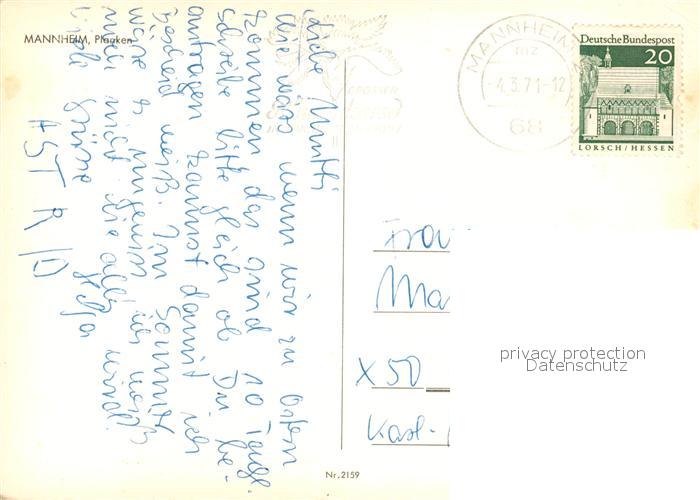 MANNHEIM, Planken
Liebe Mutti
Wie wäre es wenn wir zu Ostern
kommen das sind 10 Tage.
schreibe bitte gleich ob Du be-
antragen kannst damit ich
bescheid weiß. Im Sommer
wäre es ungewiß ich weiß
noch nicht wie alles wird.
Viele Grüße
Helga
ASTRID
GROSSER
MANNHEIM
mz
-4.3.71-12
68
Deutsche Bundespost
20
LORSCH/HESSEN
Frau
Ma
X 50
Karl-
privacy protection
Datenschutz
Nr. 2159